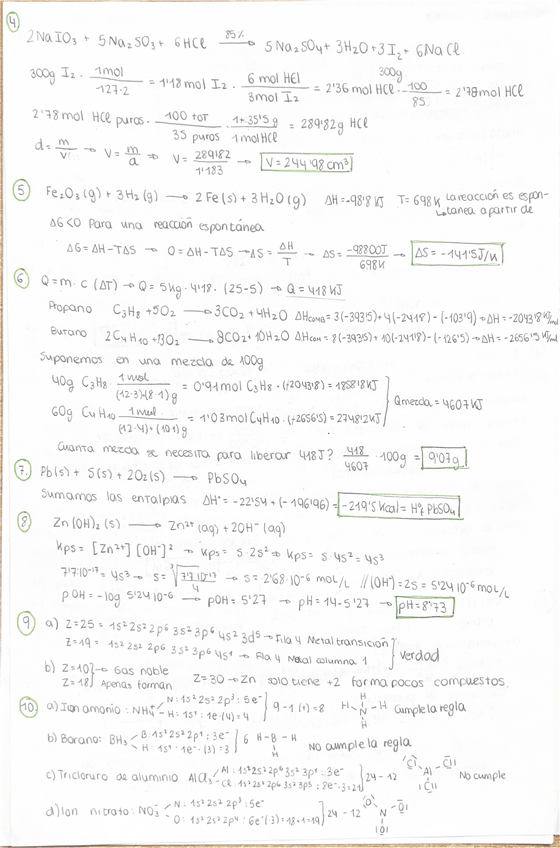 ④ 2NaIO3 + 5Na2SO3 + 6HCl —85%→ 5Na2SO4 + 3H2O + 3I2 + 6NaCl
300g I2 · 1mol/127·2 = 1'18mol I2 · 6 mol HCl/3mol I2 = 2'36 mol HCl · 100/85 = 2'78mol HCl
300g
2'78 mol HCl puros · 100 TOT/35 puros · 1+35'5 g/1mol HCl = 289'82g HCl
d = m/v → V = m/d → V = 289'82/1'183 → V = 244'98 cm³
⑤ Fe2O3 (g) + 3H2 (g) → 2Fe(s) + 3H2O(g) ΔH = -98'8 KJ T = 698K La reacción es espon-
tanea a partir de
ΔG<0 Para una reacción espontánea
ΔG = ΔH - TΔS → 0 = ΔH - TΔS → ΔS = ΔH/T → ΔS = -98800J/698K → ΔS = -141'5 J/K
⑥ Q = m · c (ΔT) → Q = 5Kg · 4'18 · (25-5) → Q = 418 KJ
Propano C3H8 + 5O2 → 3CO2 + 4H2O ΔHcomb = 3(-393'5) + 4(-241'8) - (-103'9) → ΔH = -2043'8 KJ/mol
Butano 2C4H10 + 13O2 → 8CO2 + 10H2O ΔHcom = 8(-393'5) + 10(-241'8) - (-126'5) → ΔH = -2656'5 KJ/mol
Suponemos en una mezcla de 100g
40g C3H8 · 1 mol/(12·3)+(8·1) g = 0'91mol C3H8 · (+2043'8) = 1858'8 KJ
Qmezcla = 4607 KJ
60g C4H10 · 1 mol/(12·4)+(10·1)g = 1'03mol C4H10 · (+2656'5) = 2748'2 KJ
Cuanta mezcla se necesita para liberar 418J? 418/4607 · 100g = 9'07g
⑦ Pb(s) + S(s) + 2O2(s) → PbSO4
Sumamos las entalpias ΔH° = -22'54 + (-196'96) = -219'5 Kcal = H°f PbSO4
⑧ Zn(OH)2 (s) → Zn2+ (aq) + 2OH- (aq)
Kps = [Zn2+] [OH-]² → Kps = s · 2s² → Kps = s · 4s² = 4s³
7'7·10-17 = 4s³ → s = ³√7'7·10-17/4 → s = 2'68·10-6 mol/L // (OH-) = 2s = 5'24 10-6 mol/L
pOH = -log 5'24 10-6 → pOH = 5'27 → pH = 14 - 5'27 → pH = 8'73
⑨ a) Z=25 = 1s² 2s² 2p6 3s² 3p6 4s² 3d5 → Fila 4 Metal transición
Verdad
Z=19 = 1s² 2s² 2p6 3s² 3p6 4s1 → Fila 4 Metal columna 1
b) Z=10 → Gas noble
Z=18 Apenas forman Z=30 → Zn solo tiene +2 forma pocos compuestos
⑩ a) Ion amonio: NH4+ N: 1s² 2s² 2p³: 5e- H: 1s1: 1e·(4)=4 9 - 1 (+) = 8 H-N-H H H Cumple la regla
b) Borano: BH3 B: 1s² 2s² 2p1: 3e- H: 1s1: 1e-·(3)=3 6 H-B-H H No cumple la regla
c) Tricloruro de aluminio AlCl3 Al: 1s² 2s² 2p6 3s² 3p1: 3e- Cl: 1s² 2s² 2p6 3s² 3p5: 8e-·3=21 24 - 12 Cl Al Cl Cl No cumple
d) Ion nitrato: NO3- N: 1s² 2s² 2p³: 5e- O: 1s² 2s² 2p4: 6e-(·3)=18+1=19 24 - 12 O N O O